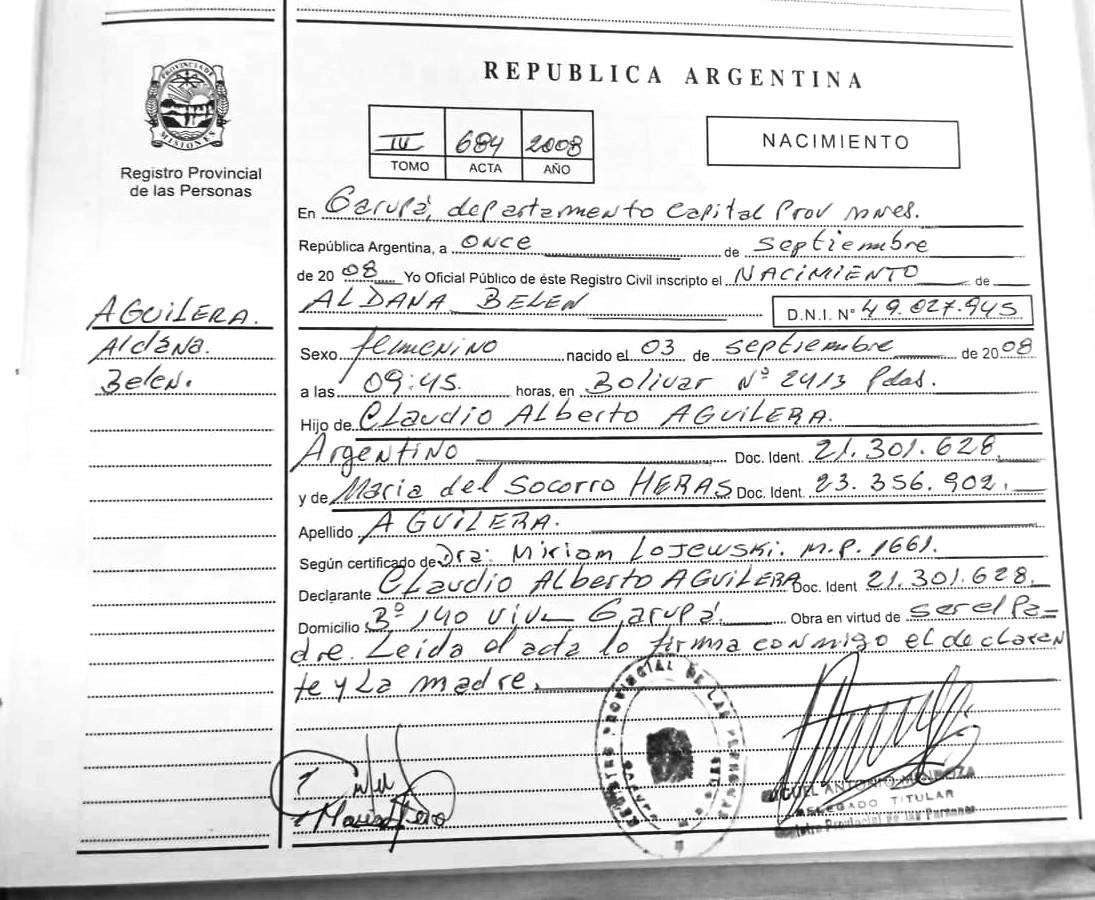 REPUBLICA ARGENTINA
PROVINCIA DE
MISIONES
Registro Provincial
de las Personas
III 684 2008
TOMO ACTA AÑO
NACIMIENTO
En Garupá, departamento Capital Prov mnes.
República Argentina, a once de septiembre
de 2008 Yo Oficial Público de éste Registro Civil inscripto el NACIMIENTO de
ALDANA BELEN D.N.I. Nº 49.027.945
AGUILERA.
Aldana.
Belen.
Sexo femenino nacido el 03 de septiembre de 2008
a las 09:45. horas, en Bolivar Nº 2413 Pdas.
Hijo de Claudio Alberto AGUILERA.
Argentino Doc. Ident. 21.301.628.
y de Maria del Socorro HERAS Doc. Ident. 23.356.902.
Apellido AGUILERA.
Según certificado de Dra: Miriam Lojewski. m.p. 1661.
Declarante Claudio Alberto AGUILERA Doc. Ident 21.301.628.
Domicilio Bº 140 viv Garupá. Obra en virtud de ser el Pa=
dre. Leida el acta lo firma conmigo el declaren
te y La madre.
REGISTRO PROVINCIAL DE LAS PERSONAS
MIGUEL ANTONIO MENDOZA
DELEGADO TITULAR
Registro Provincial de las Personas